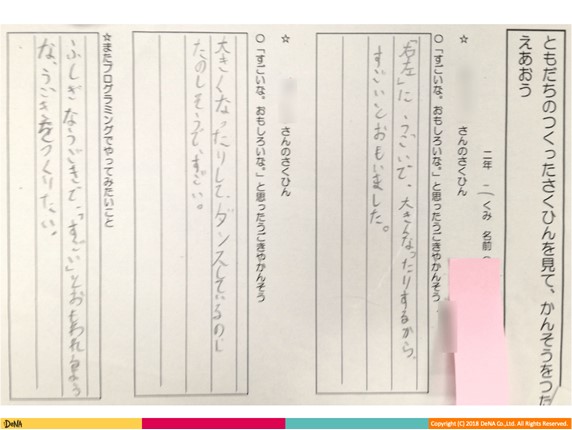 ともだちのつくったさくひんを見て、かんそうをつた
えあおう
二年 二くみ 名前
☆ さんのさくひん
○「すごいな。おもしろいな。」と思ったうごきやかんそう
「右左」にうごいで、大きくなったりするから、
すごいとおもいました。
☆ さんのさくひん
○「すごいな。おもしろいな。」と思ったうごきやかんそう
大きくなったりして、ダンスしているのし
たのしそうで、すごい。
☆またプログラミングでやってみたいこと
ふしぎなうごきで、「すごい」とおもわれるよう
な、うごきをつくりたい。
DeNA
Copyright (C) 2018 DeNA Co.,Ltd. All Rights Reserved.